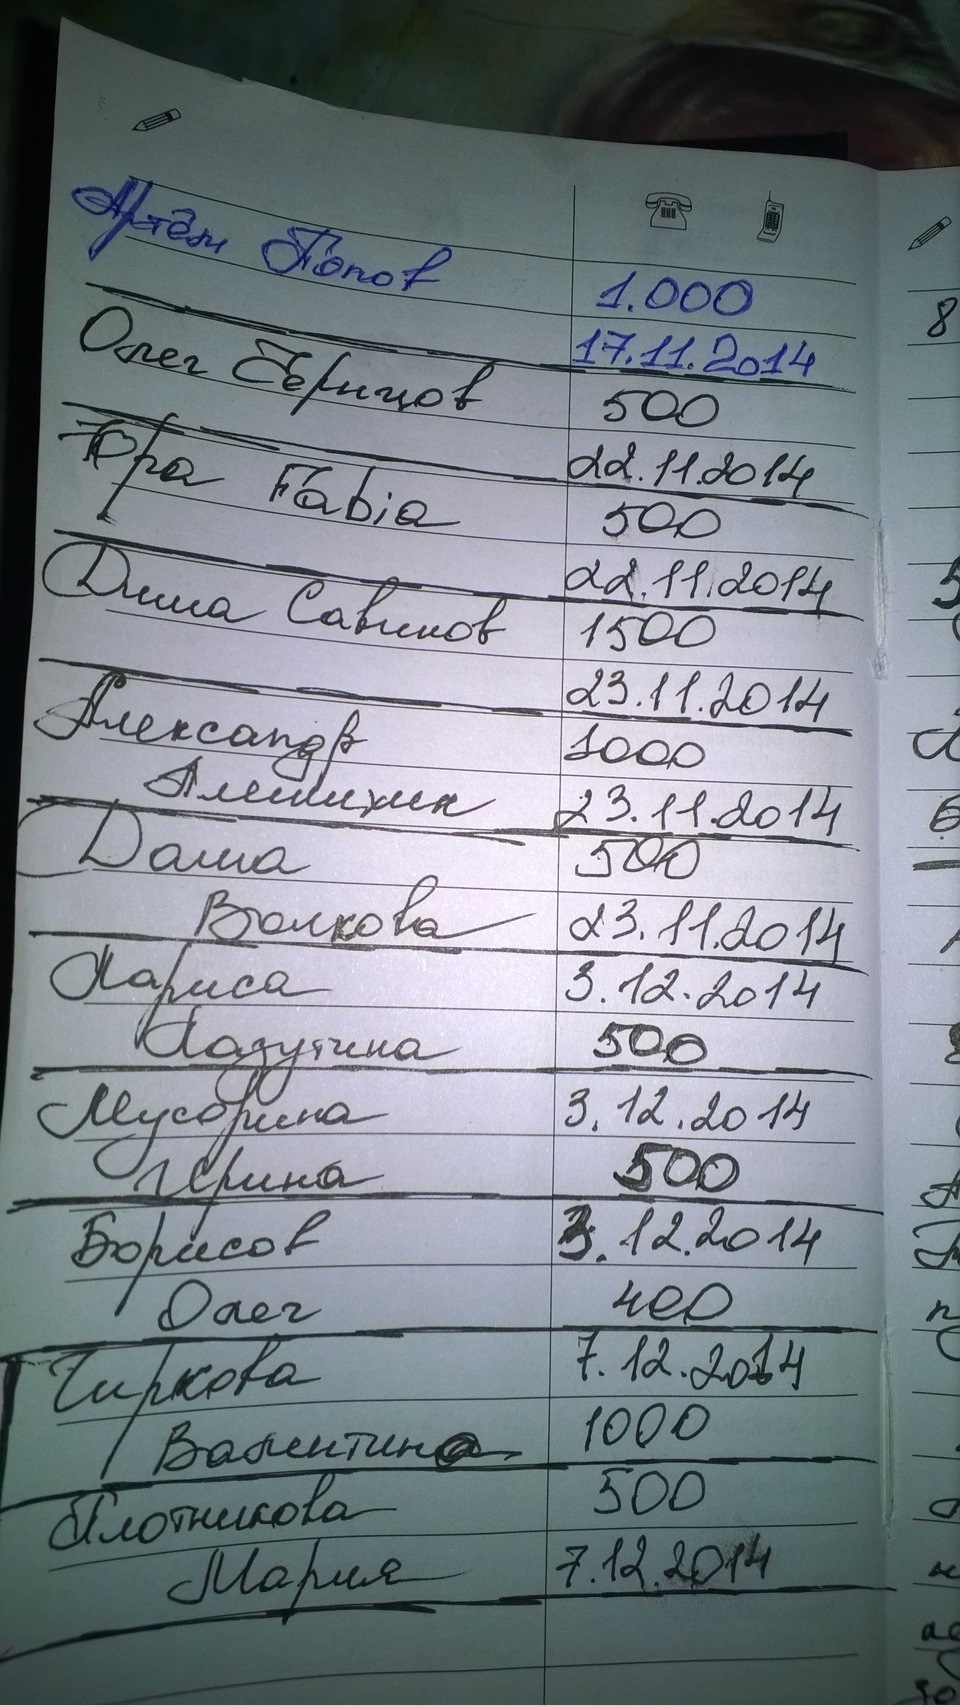 Артём Попов 1.000
17.11.2014
Олег 500
22.11.2014
Юра Fabia 500
22.11.2014
Дима Савинов 1500
23.11.2014
Александр 1000
23.11.2014
Даша 500
Волкова 23.11.2014
Лариса 3.12.2014
Лазутина 500
Мусорина 3.12.2014
Ирина 500
Борисов 3.12.2014
Олег 400
Чиркова 7.12.2014
Валентина 1000
Плотникова 500
Мария 7.12.2014
8